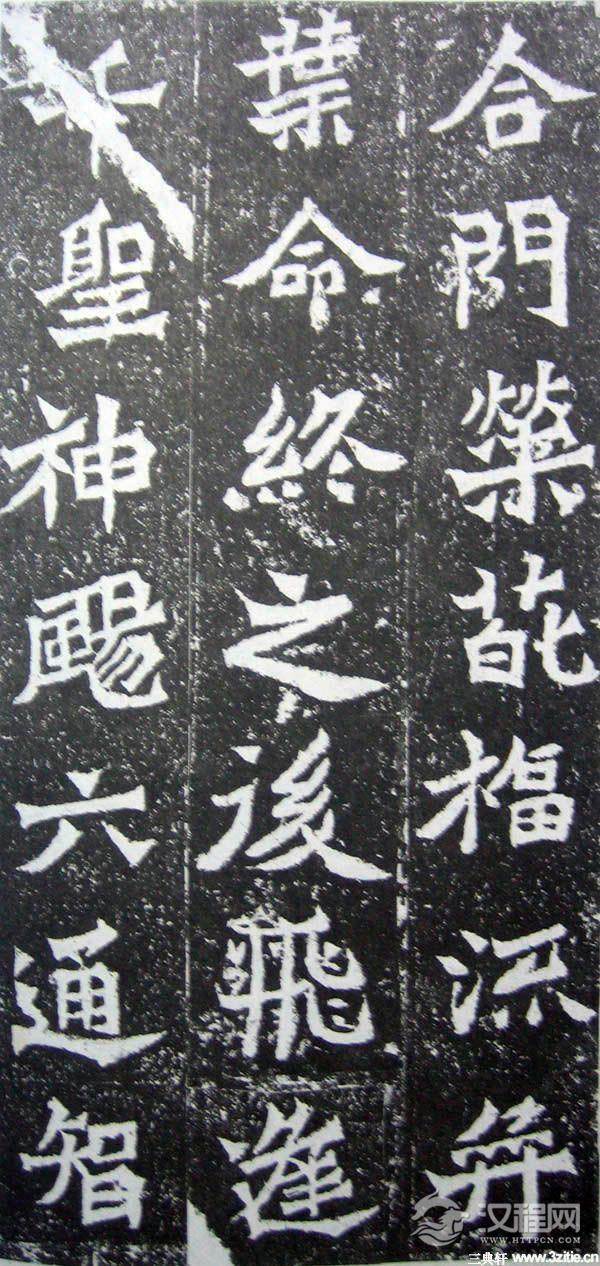 合門榮葩福流奕
葉命終之後飛逢
千聖神颺六通智
汉程网
WWW.HTTPCN.COM
三典轩 www.3zitie.cn